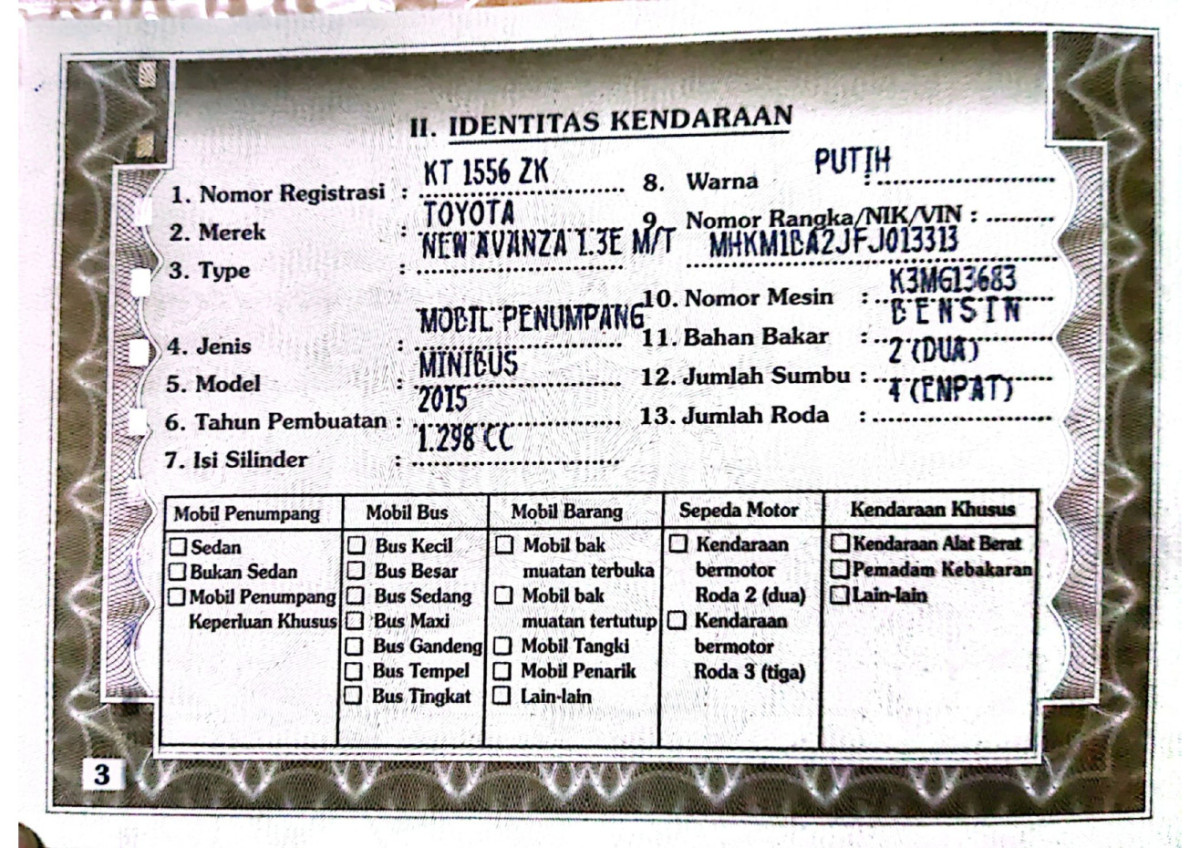 II. IDENTITAS KENDARAAN
1. Nomor Registrasi : KT 1556 ZK
2. Merek : TOYOTA
3. Type : NEW AVANZA 1.3E M/T
4. Jenis : MOBIL PENUMPANG
5. Model : MINIBUS
6. Tahun Pembuatan : 2015
7. Isi Silinder : 1.298 CC
8. Warna : PUTIH
9. Nomor Rangka/NIK/VIN : MHKM1BA2JFJ013313
10. Nomor Mesin : K3MG13683
11. Bahan Bakar : BENSIN
12. Jumlah Sumbu : 2 (DUA)
13. Jumlah Roda : 4 (EMPAT)
Mobil Penumpang
Sedan
Bukan Sedan
Mobil Penumpang
Keperluan Khusus
Mobil Bus
Bus Kecil
Bus Besar
Bus Sedang
Bus Maxi
Bus Gandeng
Bus Tempel
Bus Tingkat
Mobil Barang
Mobil bak
muatan terbuka
Mobil bak
muatan tertutup
Mobil Tangki
Mobil Penarik
Lain-lain
Sepeda Motor
Kendaraan
bermotor
Roda 2 (dua)
Kendaraan
bermotor
Roda 3 (tiga)
Kendaraan Khusus
Kendaraan Alat Berat
Pemadam Kebakaran
Lain-lain
3